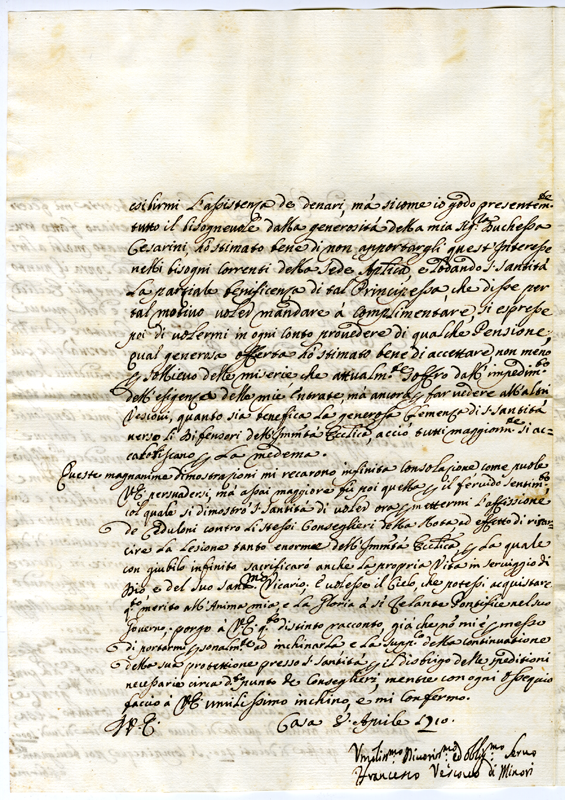 esibirmi l'assistenza de denari, mà sicome io godo presentem.te
tutto il bisognevole dalla generosità della mia Sig.ra Duchessa
Cesarini, hò stimato bene di non apportargli quest'interesse
nelli bisogni correnti della Sede Aplica, e lodando S. Santità
la parziale beneficenza di tal Principessa, che disse per
tal motivo voler mandare à complimentare, si espresse
poi di volermi in ogni conto provedere di qualche Pensione,
qual generosa offerta hò stimato bene di accettare non meno
p sollievo delle miserie, che attualm.te soffro dall'impedim.to
dell'esigenza delle mie entrate, mà ancora p far vedere all'altri
Vescovi, quanto sia benefica la generosa Clemenza di S. Santità
verso li Difensori dell'Immtà Ecclica, acciò tutti maggiorm.te si ac-
p la medema.
Queste magnanime dimostrazioni mi recarono infinita consolazione come puole
V.E. persuadersi, mà assai maggiore fù poi quella p il fervido sentim.to
col quale si dimostrò S. Santità di voler ora p mettermi l'affissione
de Cedoloni contro li stessi Conseglieri della Rota ad effetto di risar-
cire la lesione tanto enorme dell'Immtà Ecclica p la quale
con giubilo infinito sacrificarò anche la propria Vita in servigio di
Dio, e del suo San.mo Vicario, E volesse il Cielo, che potessi acquistare
q.to merito all'Anima mia, e la Gloria à sì zelante Pontefice nel suo
Governo, porgo à V.E. q.to distinto racconto, già che nò mi è p messo
di portarmi p sonalm.te ad inchinarla, e la supp.co della continuatione
della sua protettione presso S. Santità p il disbrigo delle speditioni
necessarie circa d.o punto de Conseglieri, mentre con ogni ossequio
faccio à V.E. umilissimo inchino, e mi confermo.
D. V. E. Casa 8 Aprile 1710.
Umiliss.mo Divotiss.mo ed obblig.mo Servo
Francesco Vescovo di Minori